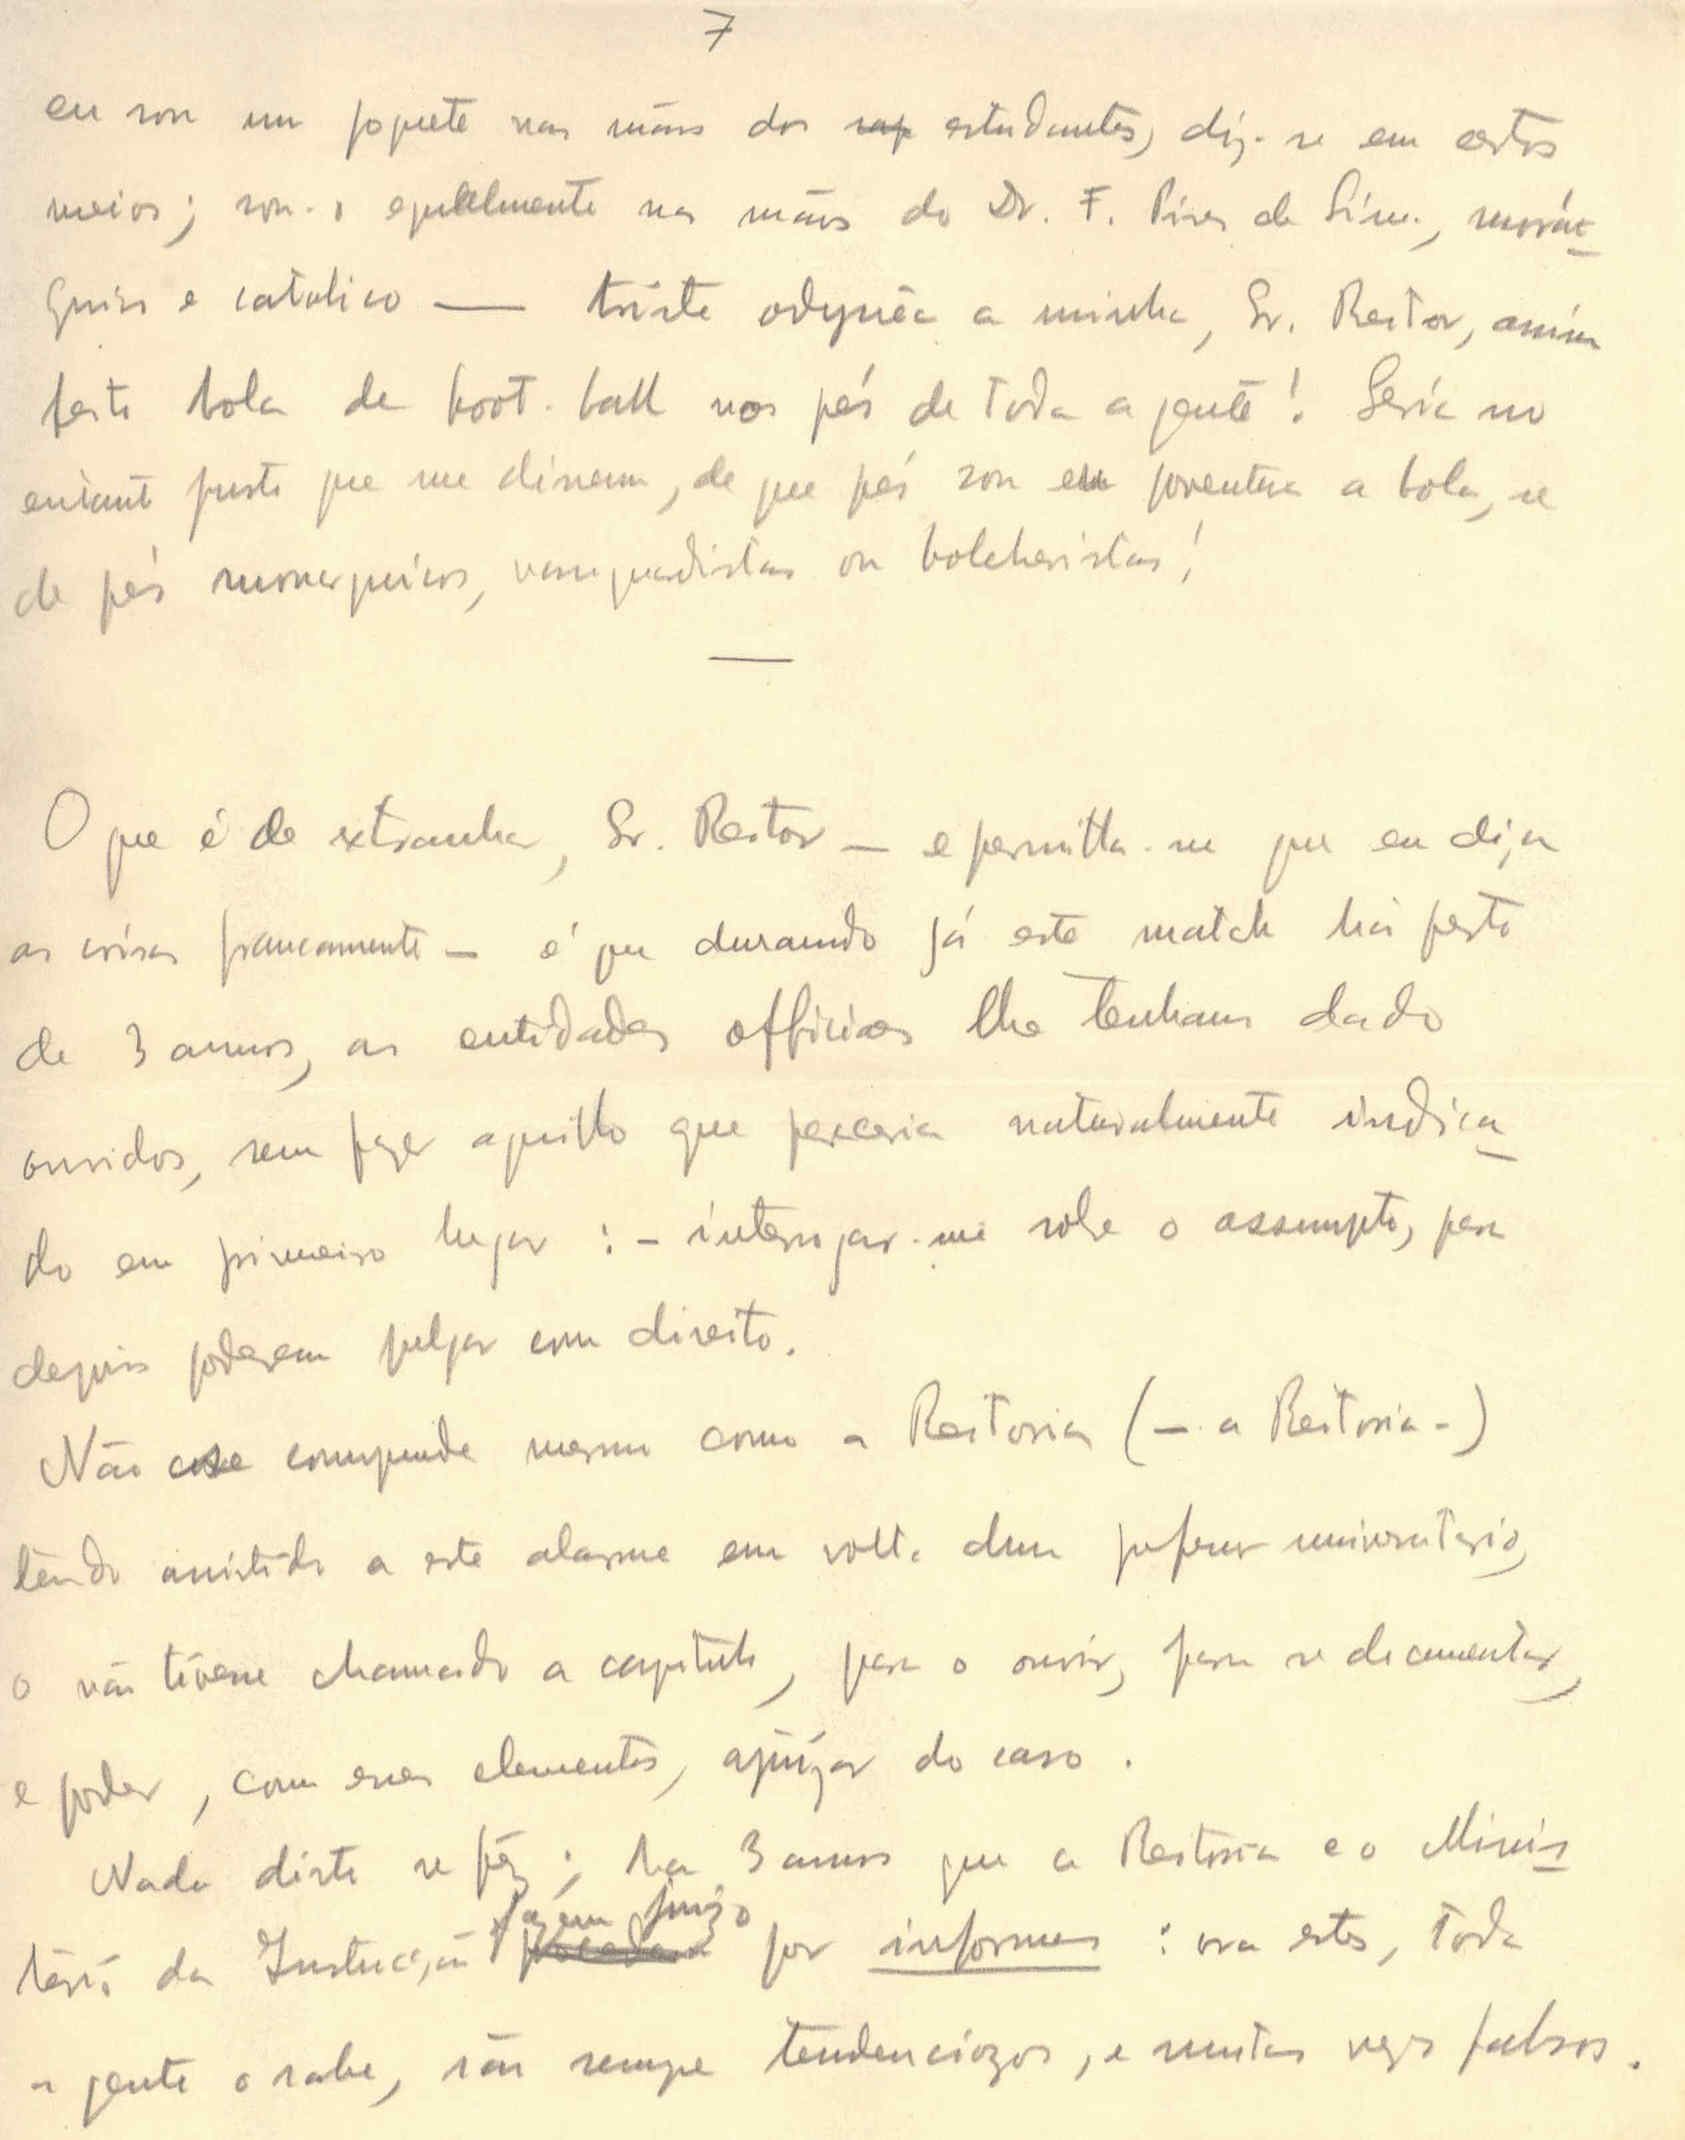 7
eu sou um joguete nas mãos dos estudantes, diz-se em certos
meios; sou-o egualmente nas mãos do Dr. F. Pires de Lima,
e catolico — triste odysséa a minha, Sr. Reitor, assim
feito bola de foot-ball nos pés de toda a gente! Seria no
entanto justo que me dissessem, de que pés sou eu porventura a bola, se
de pés monarquicos, vanguardistas ou bolchevistas!
—
O que é de extranhar, Sr. Reitor — e permitta-me que eu diga
as coisas francamente — é que durando já este match há perto
de 3 annos, as entidades officiaes lhe tenham dado
ouvidos, sem fazer aquillo que pareceria naturalmente indica
do em primeiro lugar : – interrogar-me sobre o assumpto, para
depois poderem julgar com direito.
Não se compreende mesmo como a Reitoria (– a Reitoria –)
tendo assistido a este alarme em volta dum professor universitario,
o não tivesse chamado a capitulo, para o ouvir, para se documentar,
e poder, com esses elementos, ajuizar do caso.
Nada disto se fez; ha 3 annos que a Reitoria e o Minis
terio da Instrucção fazem juizo por informes : ora estes, toda
a gente o sabe, são sempre tendenciozos, e muitas vezes falsos.